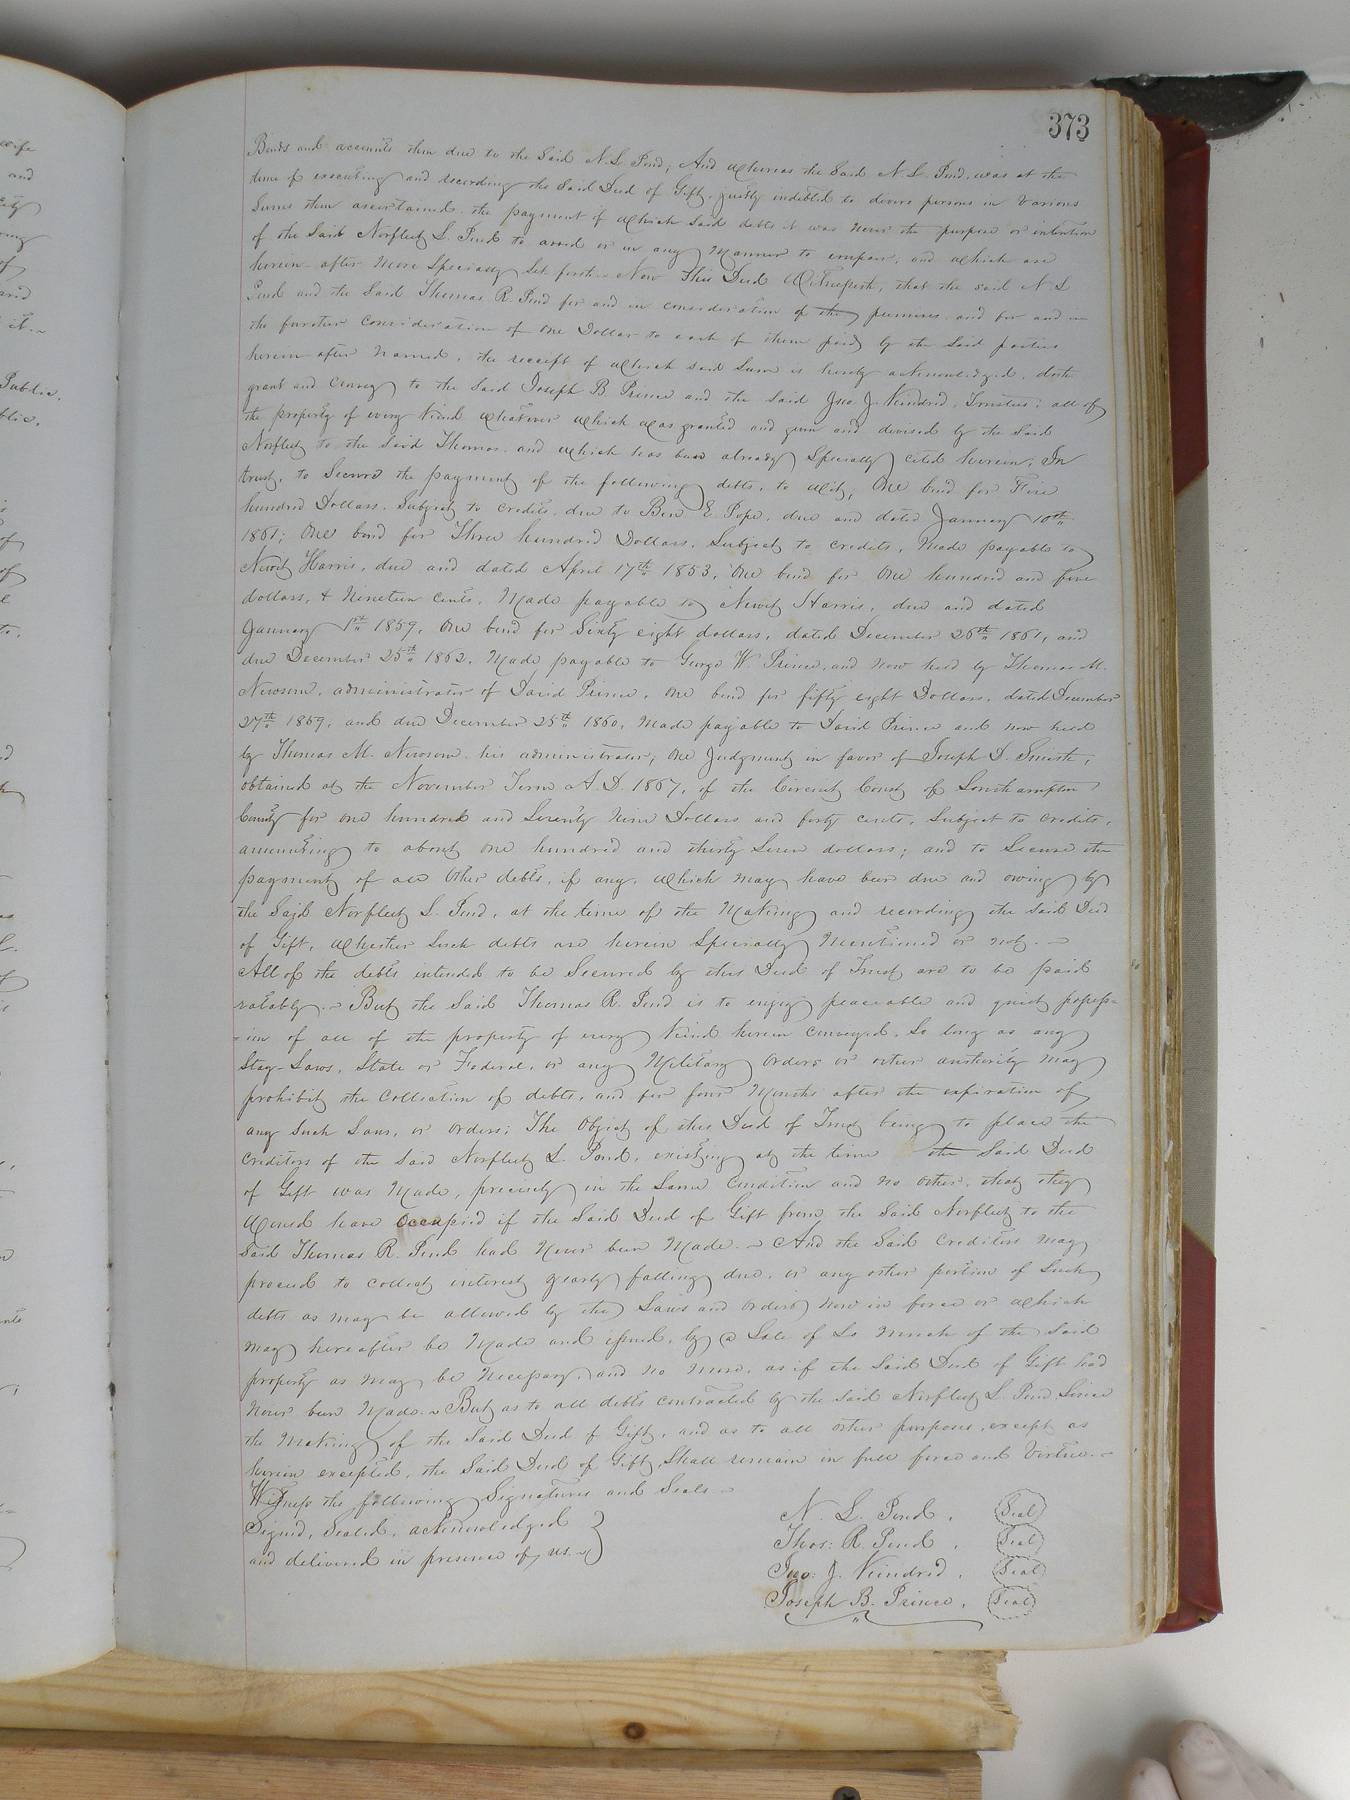 373
Bonds and accounts then due to the Said N. L. Pond; And whereas the Said N. L. Pond, was at the
time of executing and recording the Said Deed of Gift, justly indebted to divers persons in various
Sums then ascertained, the payment of which Said debts it was never the purpose or intention
of the Said Norfleet L. Pond to avoid or in any Manner to impair, and which are
herein-after More Specially Set forth - Now This Deed Witnesseth, that the said N. L
Pond and the Said Thomas R. Pond for and in consideration of the premises and for and in
the further Consideration of One Dollar to each of them paid by the Said parties
herein-after named, the receipt of which said Sum is hereby acknowledged, doth
grant and Convey to the Said Joseph B. Prince and the said Jno J. Kindred, Trustees; all of
the property of every kind whatever which was granted and given and devised by the Said
Norfleet to the Said Thomas, and which has been already Specially cited herein; In
trust, to Secure the payment of the following debts, to wit; One bond for Five
hundred Dollars, Subject to Credits, due to Ben E. Pope, due and dated January 10th
1861; One bond for Three hundred Dollars, Subject to credits, Made payable to
Newit Harris, due and dated April 17th 1853, One bond for One hundred and five
dollars, & Nineteen Cents, Made payable to Newit Harris, due and dated
January 1st 1859, One bond for Sixty eight dollars, dated December 26th 1861, and
due December 25th 1862, Made payable to George W. Prince, and now held by Thomas M.
Newsom, administrator of David Prince, One bond for fifty eight Dollars, dated December
27th 1859, and due December 25th 1860, Made payable to David Prince and now held
by Thomas M. Newsom his administrator; One Judgment in favor of Joseph D. Smith,
obtained at the November Term A.D. 1867, of the Circuit Court of Southampton
County for one hundred and Seventy Nine Dollars and forty cents, Subject to Credits,
amounting to about one hundred and thirty Seven dollars; and to Secure the
payment of all Other debts, if any, which may have been due and owing by
the Said Norfleet L. Pond, at the time of the Making and recording the said Deed
of Gift, whether Such debts are herein Specially Mentioned or not. -
All of the debts intended to be Secured by this Deed of Trust are to be paid
ratably. - But the Said Thomas R. Pond is to enjoy peaceable and quiet possess-
-ion of all of the property of every kind herein conveyed, So long as any
Stay-Laws, State or Federal, or any Military Orders or other authority may
prohibit the Collection of debts, and for four Months after the expiration of
any Such Laws, or Orders; The Object of this Deed of Trust being to place the
Creditors of the Said Norfleet L. Pond, existing at the time the Said Deed
of Gift was Made, precisely in the Same Condition and no other, that they
Would have Occupied if the Said Deed of Gift from the Said Norfleet to the
Said Thomas R. Pond had Never been Made. - And the Said Creditors may
proceed to collect interest yearly falling due, or any other portion of Such
debts as may be allowed by the Laws and Orders Now in force or which
may hereafter be Made and issued, by a Sale of So much of the Said
property as may be Necessary, and no more, as if the Said Deed of Gift had
Never been Made. - But as to all debts contracted by the Said Norfleet L. Pond Since
the Making of the Said Deed of Gift, and as to all other purposes, except as
herein excepted, the Said Deed of Gift, Shall remain in full force and Virtue. -
Witness the following Signatures and Seals -
Signed, Sealed, acknowledged
and delivered in presence of us. -
N. L. Pond, Seal
Thos: R. Pond, Seal
Jno: J. Kindred, Seal
Joseph B. Prince, Seal